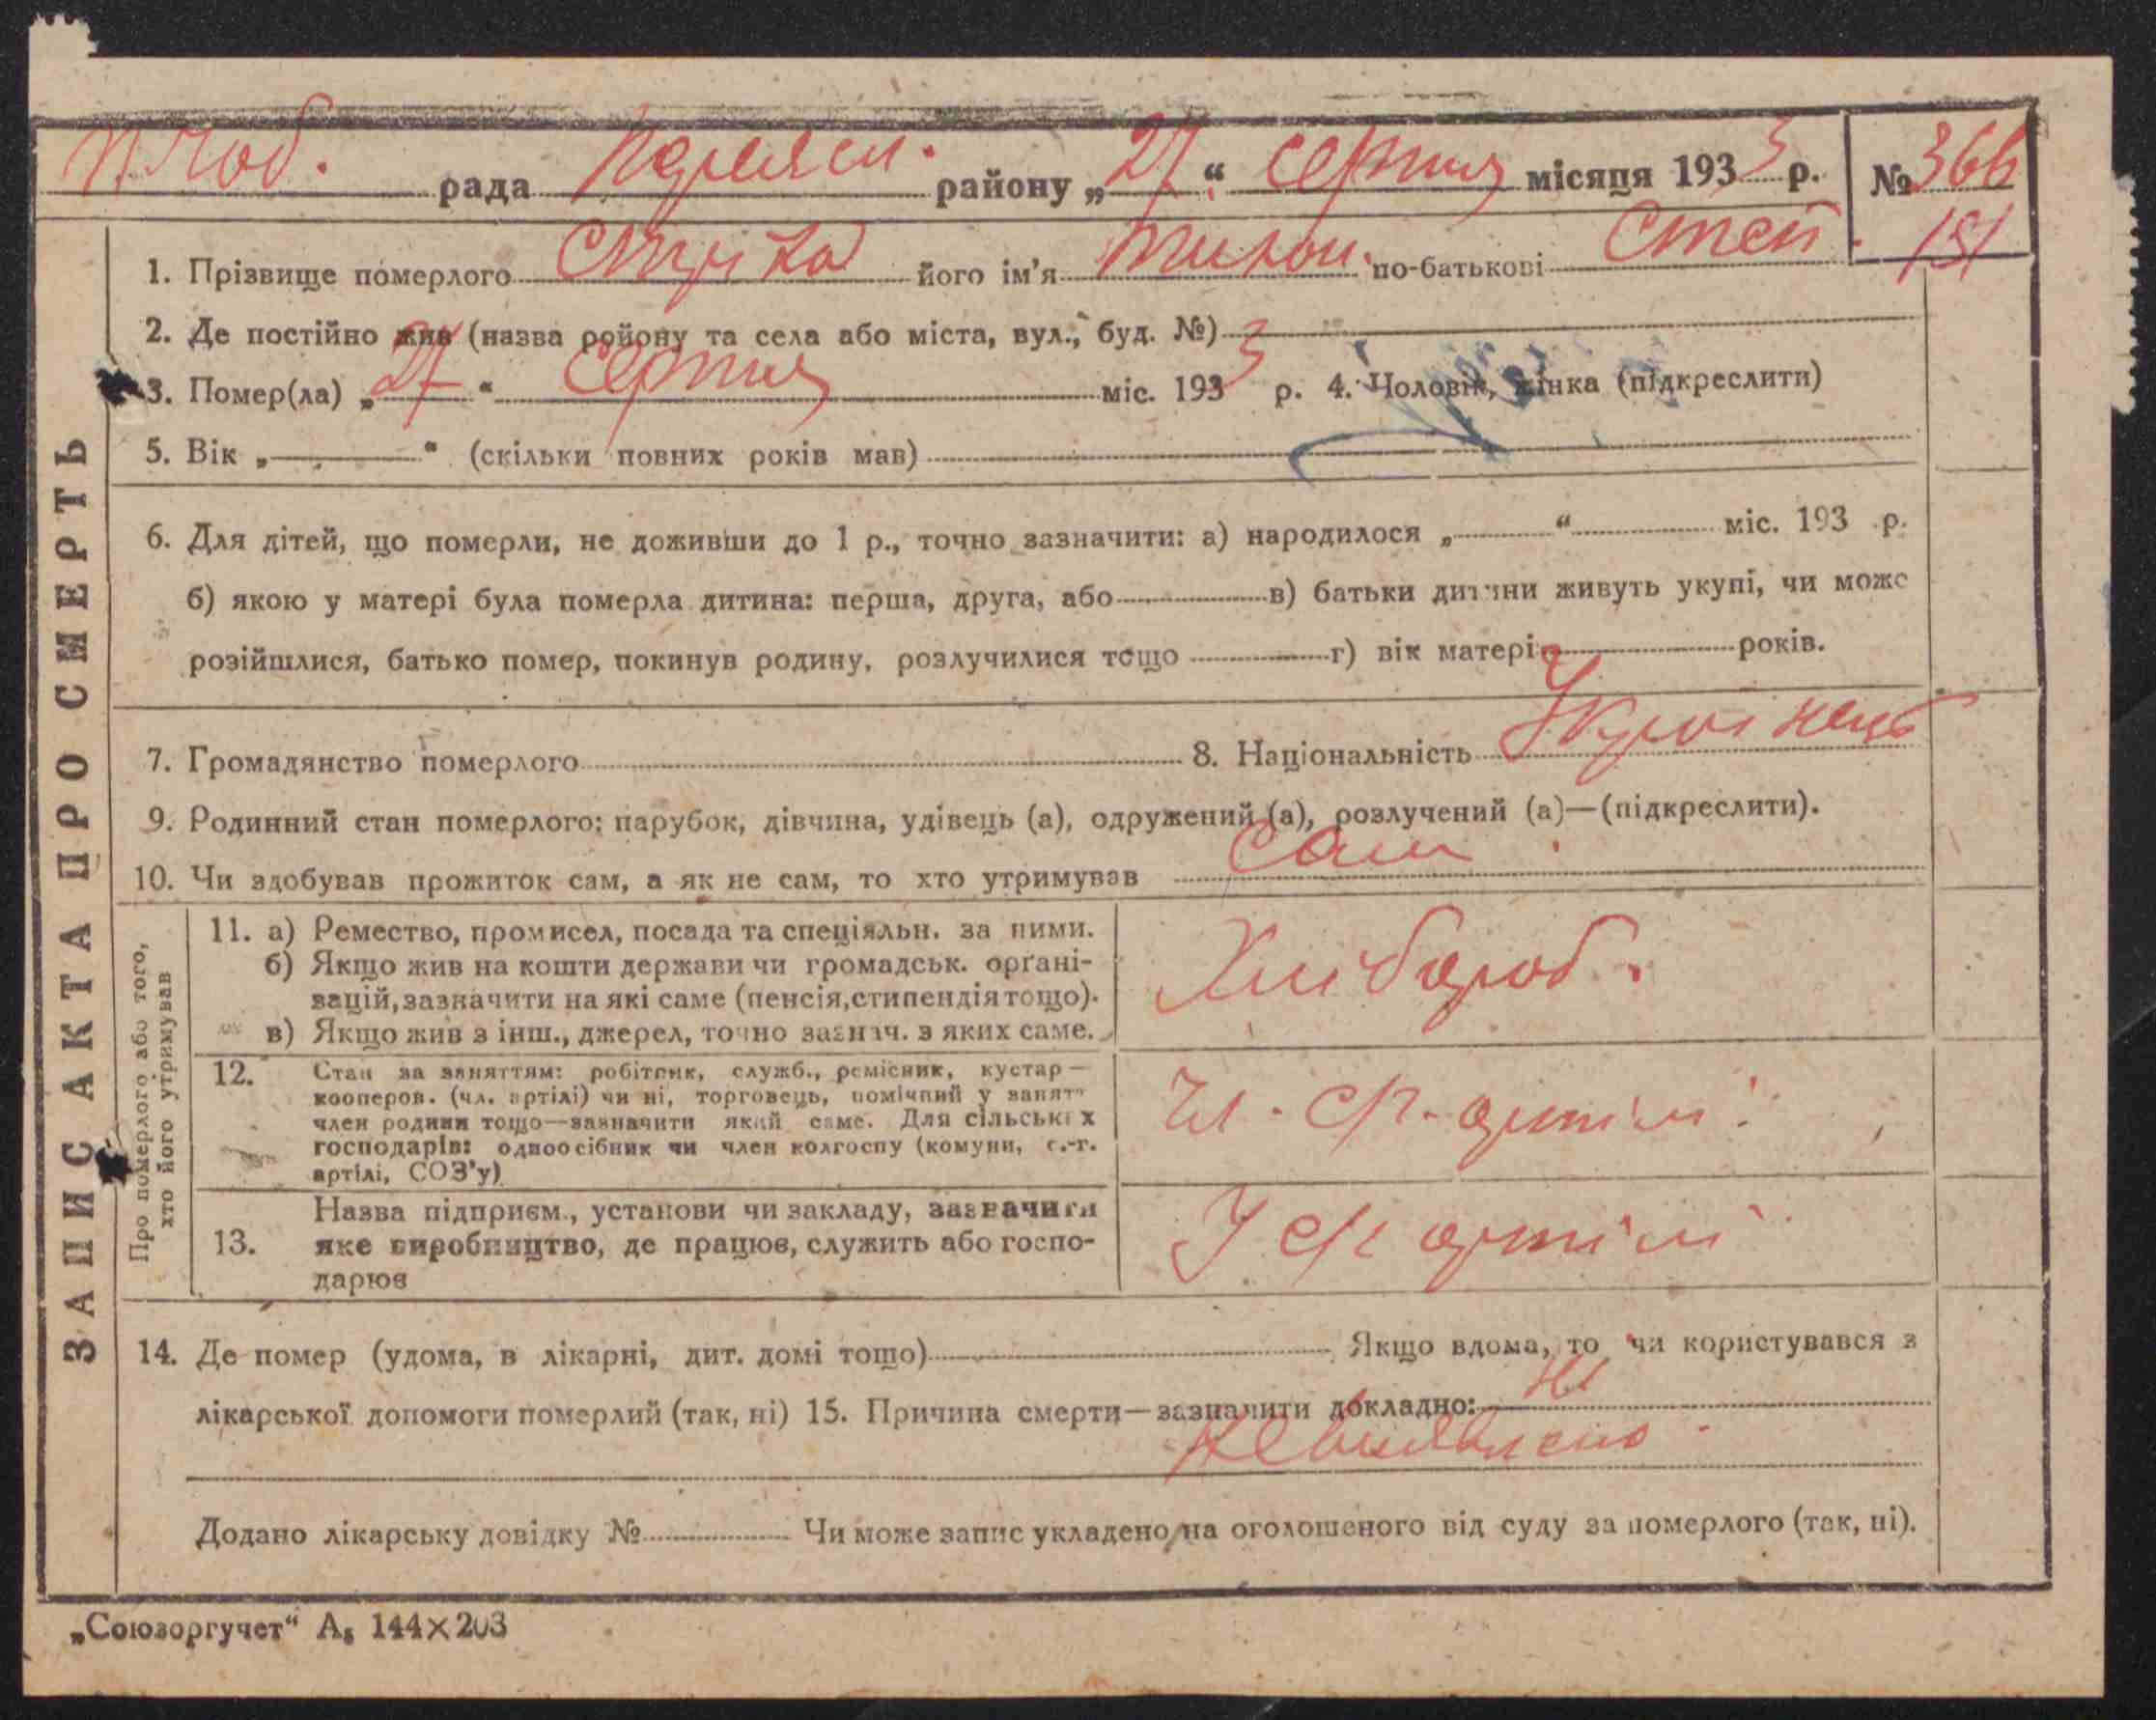 рада район у „27“ серпня місяця 1933 р. № 366
151
1. Прізвище померлого його ім'я Тихон. по-батькові Степ.
2. Де постійно жив (назва ройону та села або міста, вул., буд. №)
3. Помер(ла) „27“ серпня міс. 1933 р. 4. Чоловік, жінка (підкреслити)
5. Вік „ “ (скільки повних років мав)
6. Для дітей, що померли, не доживши до 1 р., точно зазначити: а) народилося „ “ міс. 193 р.
б) якою у матері була померла дитина: перша, друга, або в) батьки дитини живуть укупі, чи може
розійшлися, батько помер, покинув родину, розлучилися тощо г) вік матері років.
7. Громадянство померлого 8. Національність Українець
9. Родинний стан померлого: парубок, дівчина, удівець (а), одружений (а), розлучений (а)—(підкреслити).
10. Чи здобував прожиток сам, а як не сам, то хто утримував Сам
ЗАПИС АКТА ПРО СМЕРТЬ
Про померлого або того,
хто його утримував
11. а) Ремество, промисел, посада та спеціяльн. за ними.
б) Якщо жив на кошти держави чи громадськ. орґані-
зацій, зазначити на які саме (пенсія, стипендія тощо).
в) Якщо жив з інш., джерел, точно зазнач. з яких саме.
Хлібороб.
12. Стан за заняттям: робітник, служб., ремісник, кустар —
кооперов. (чл. артілі) чи ні, торговець, помічний у занятт
член родини тощо—зазначити який саме. Для сільських
господарів: одноосібник чи член колгоспу (комуни, с.-г.
артілі, СОЗ'у)
Чл. с/г. артілі
13. Назва підприєм., установи чи закладу, зазначити
яке виробництво, де працює, служить або госпо-
дарює
У с/г артілі
14. Де помер (удома, в лікарні, дит. домі тощо) Якщо вдома, то чи користувався з
лікарської допомоги померлий (так, ні) 15. Причина смерти—зазначити докладно: Ні
Не виявлено
Додано лікарську довідку № Чи може запис укладено на оголошеного від суду за померлого (так, ні).
„Союзоргучет“ А₅ 144×203